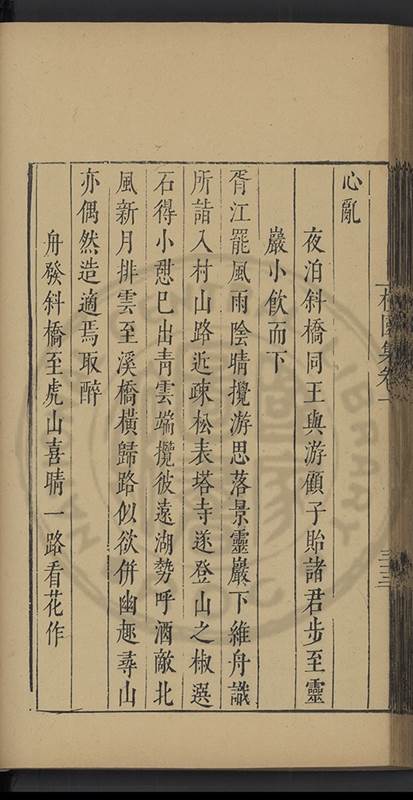 心亂
夜泊斜橋同王與游顧子貽諸君步至靈
巖小飲而下
胥江罷風雨陰晴攪游思落景靈巖下維舟識
所詣入村山路近疎松表塔寺遂登山之椒選
石得小憇已出青雲端攬彼遠湖勢呼酒敵北
風新月排雲至溪橋橫歸路似欲併幽趣尋山
亦偶然造適焉取醉
舟發斜橋至虎山喜晴一路看花作
園集卷一
三十三